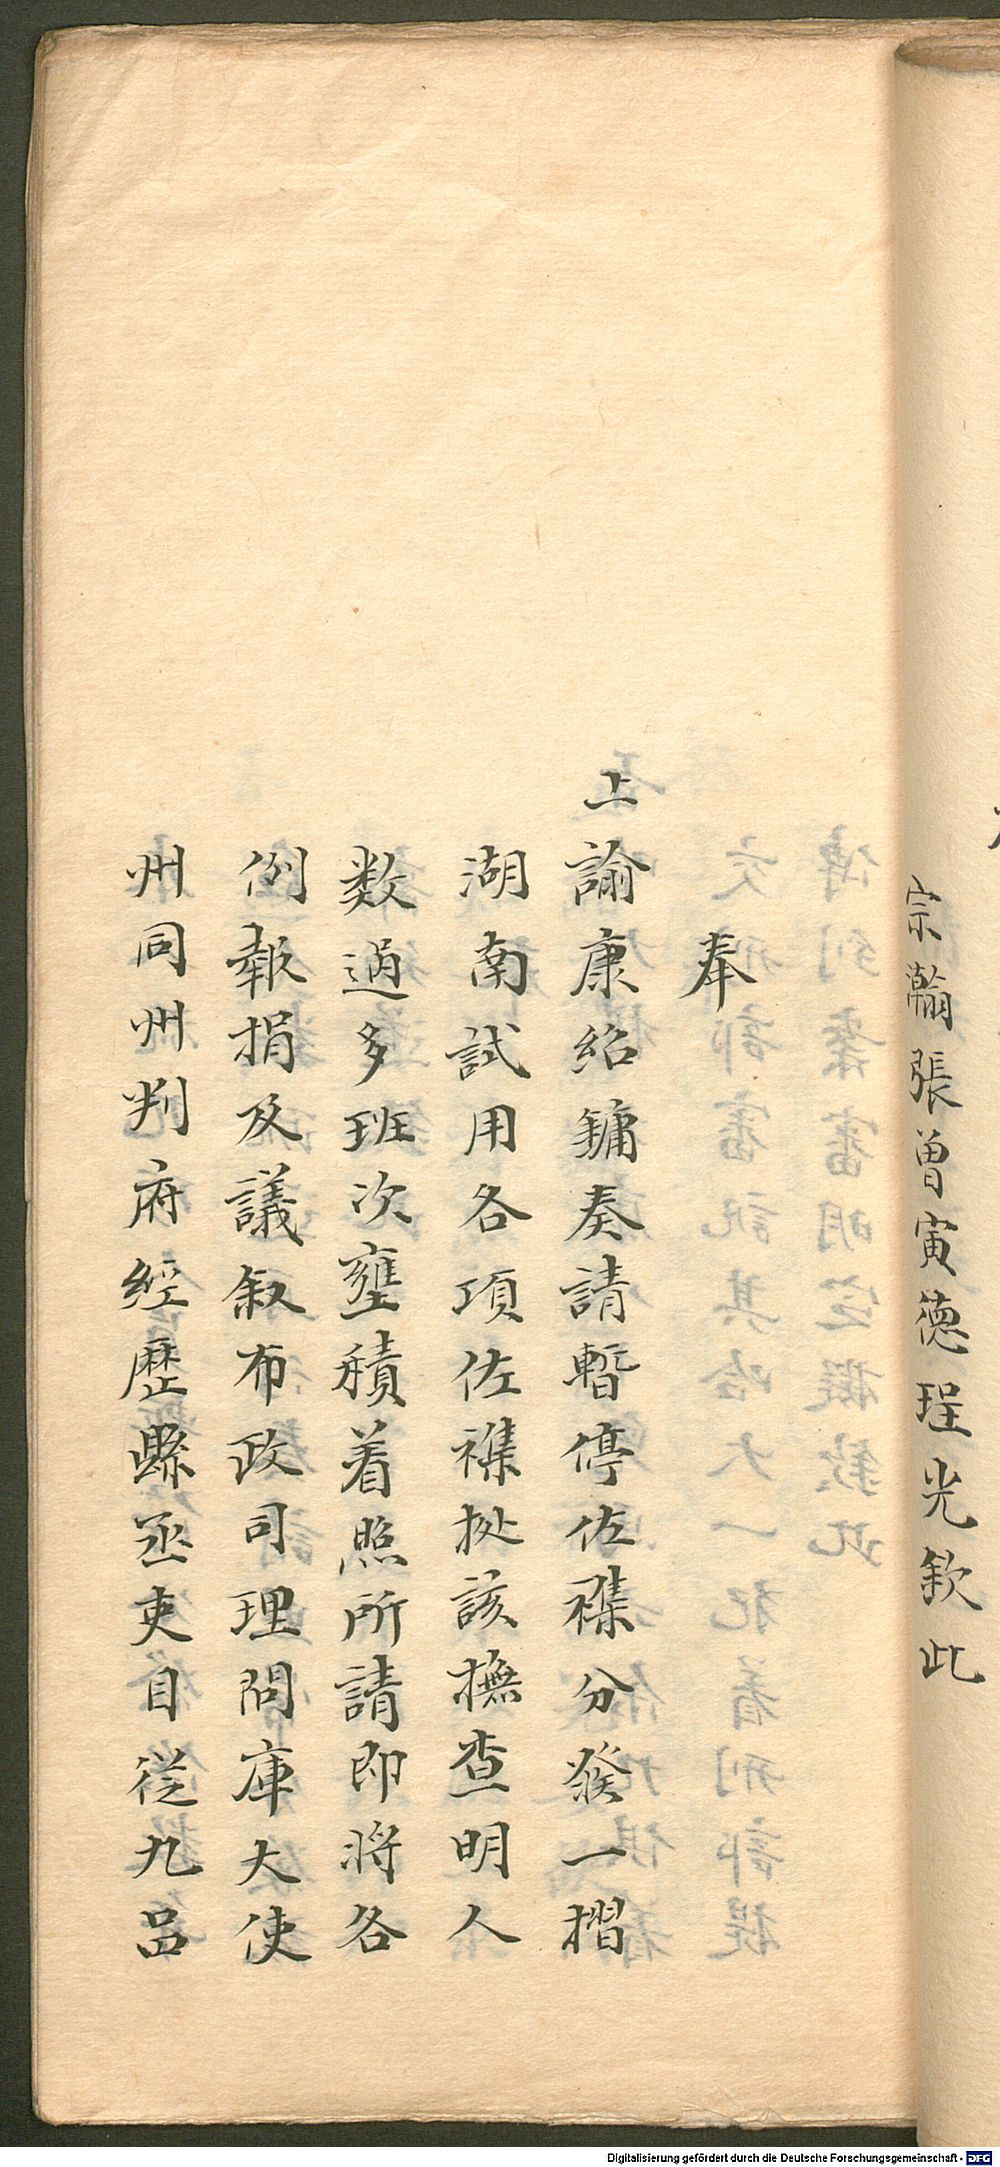 宗瀚張曾寅德珵光欽此
奉
上諭康紹鏞奏請暫停佐襍分發一摺
湖南試用各項佐襍挨該撫查明人
数過多班次壅積着照所請即將各
例報捐及議叙布政司理問庫大使
州同州判府經歷縣丞吏目從九品
Digitalisierung gefördert durch die Deutsche Forschungsgemeinschaft - DFG